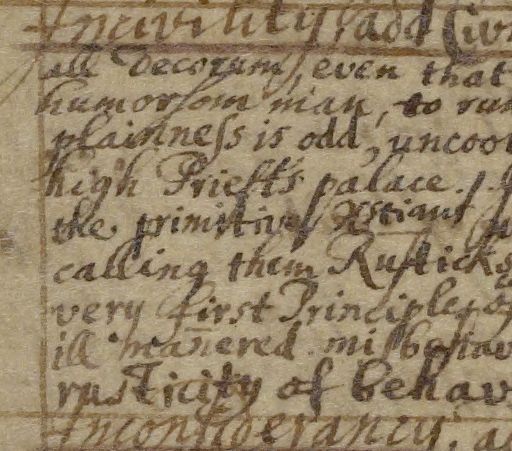 Incivility, add (
all Decorum, even that
humorsom man, to
plainneſs is odd,
high Prieſts palace.
the primitive Xstians
calling them Ruſticks
very first Principles
ill man̄ered. miſbehav
rusticity of behav
Inconſiderancy, a